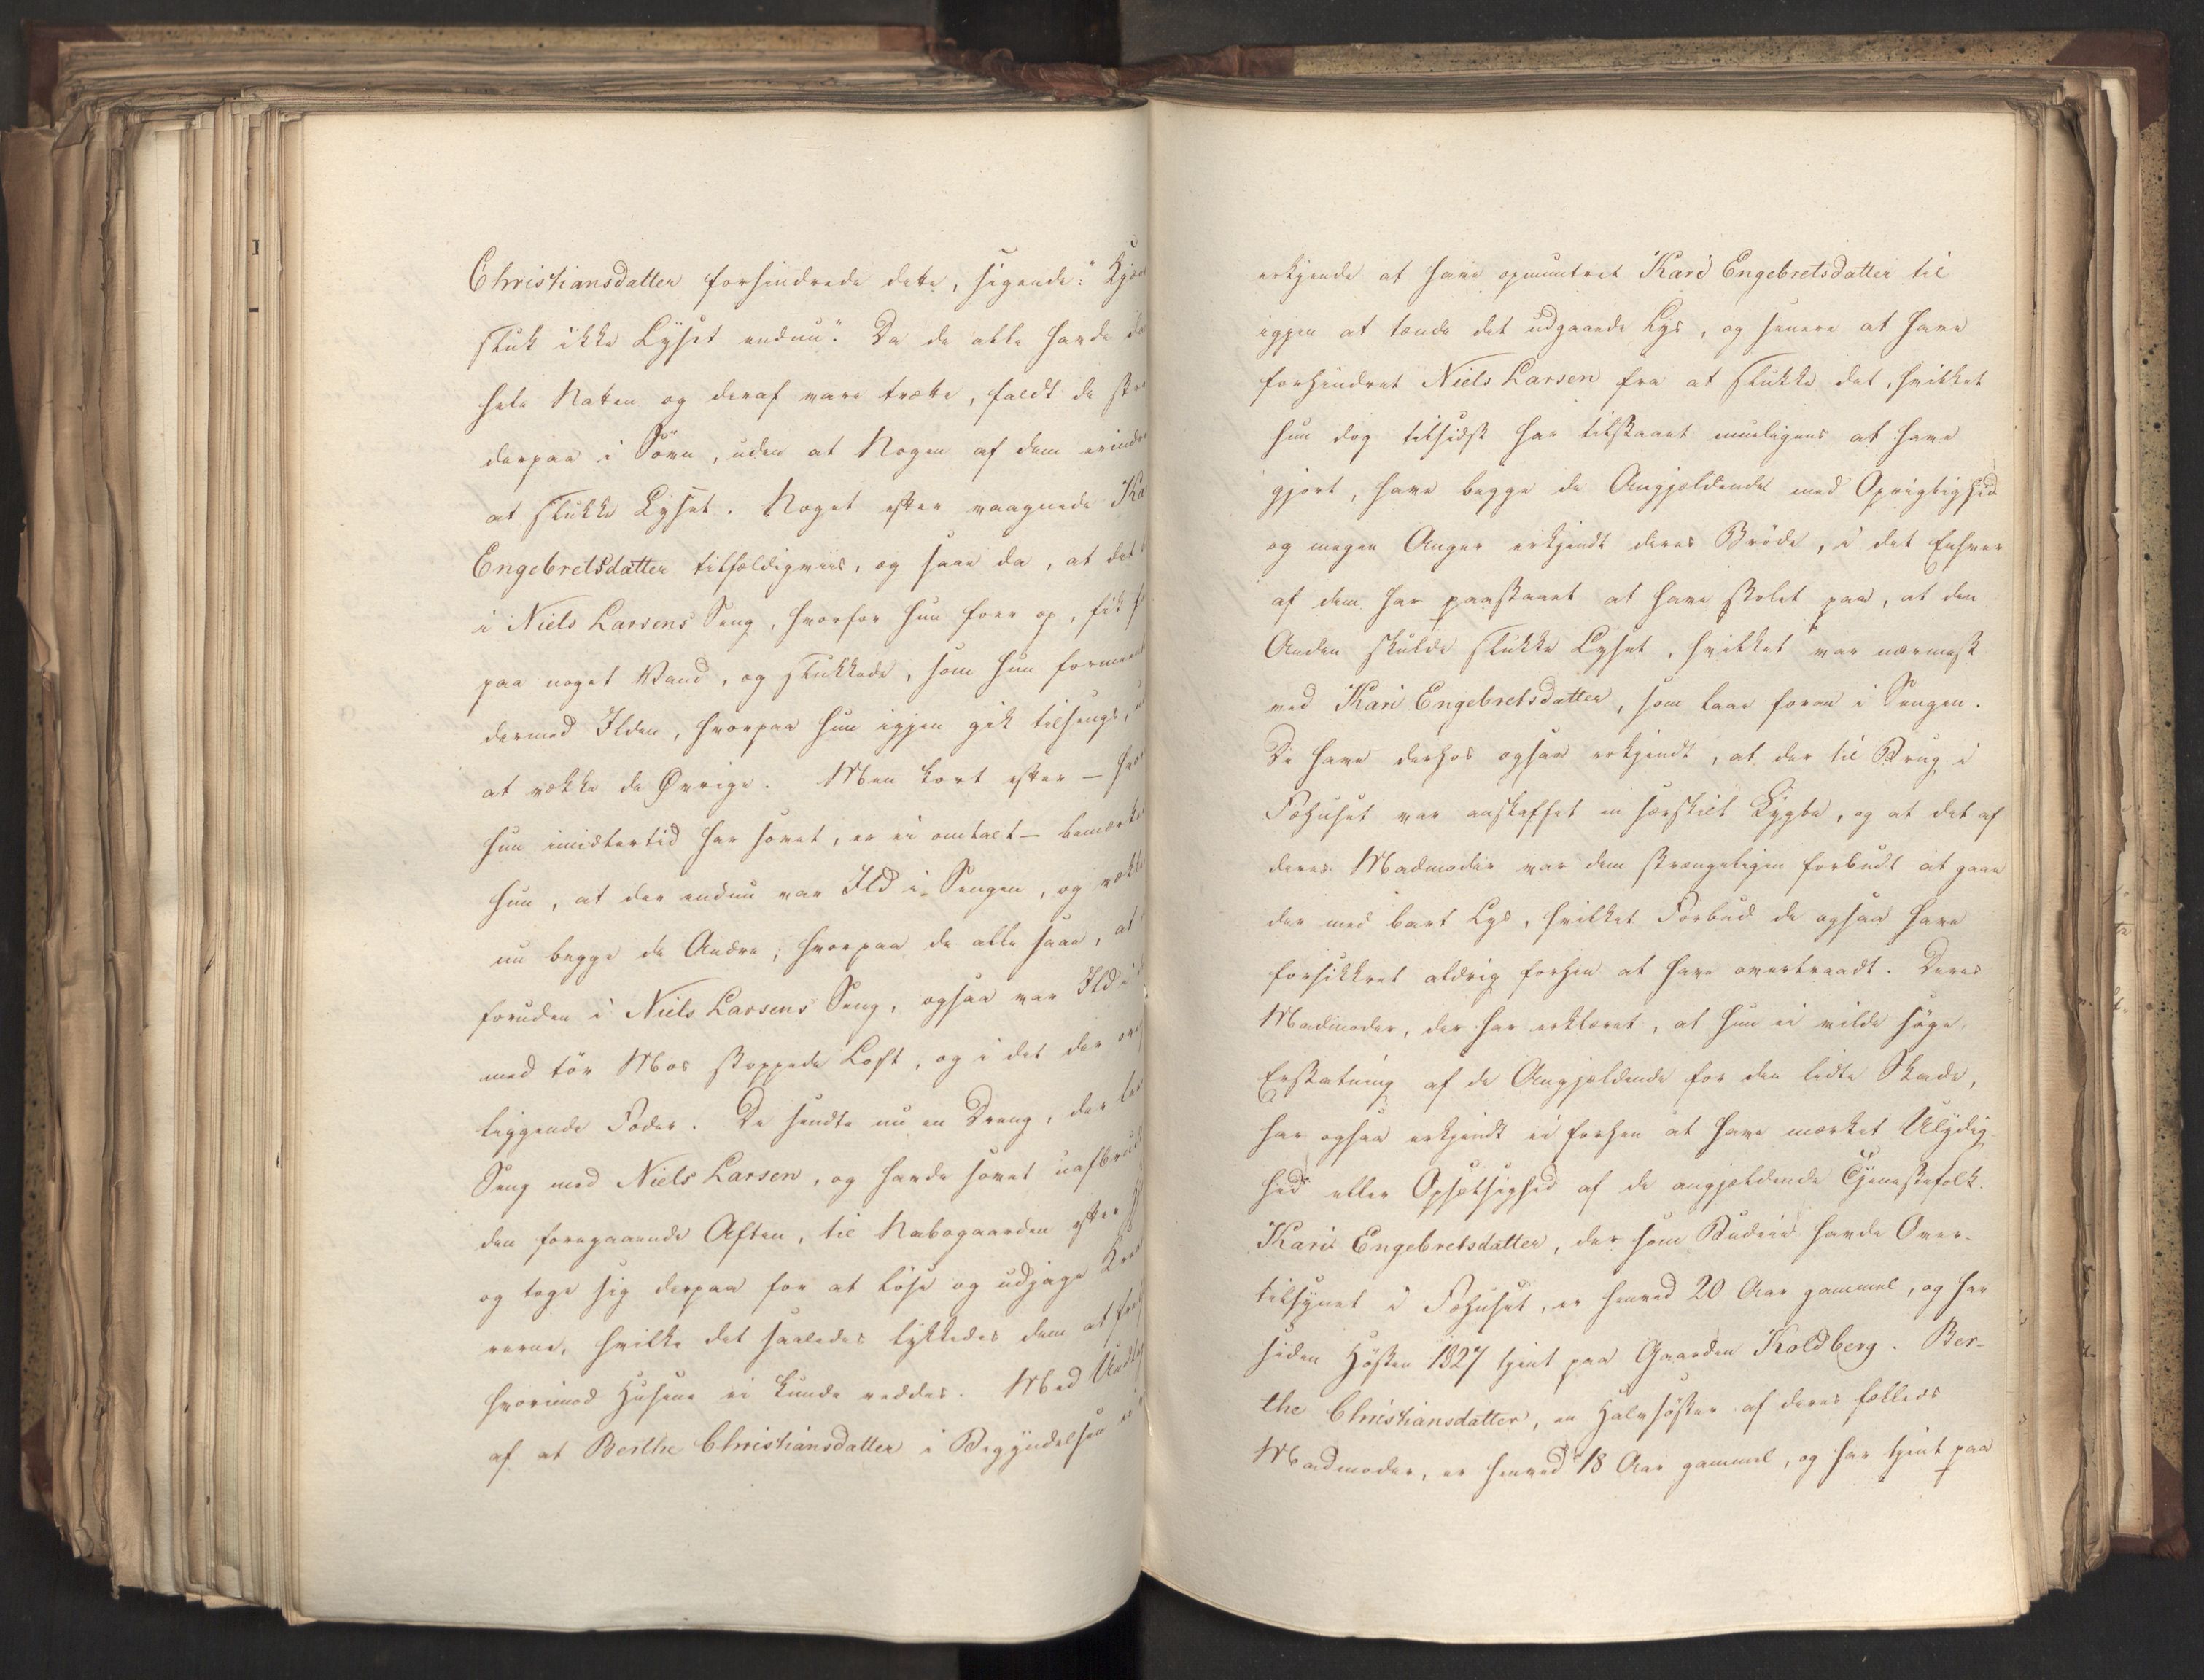 Christiansdatter forhindrede dette, sigende: "Kjære
sluk ikke Lyset endnu." Da de alle havde
hele Natten og deraf vare trætte, faldt de
derpaa i Sövn, uden at Nogen af dem erindre
at slukke Lyset. Noget efter vaagnede Ka
Engebretsdatter tilfældigviis, og saae da, at det
i Niels Larsens Seng, hvorfor hun foer op, fik
paa noget Vand, og slukkede, som hun formeent
dermed Ilden, hvorpaa hun igjen gik tilsengs,
at vække de Øvrige. Men kort efter – hvor
hun imidlertid har sovet, er ei omtalt – bemærke
hun, at der endnu var Ild i Sengen, og vækk
nu begge de Andre; hvorpaa de alle saae, at
foruden i Niels Larsens Seng, ogsaa var Ild i
med tör Mos stoppede Loft, og i det der
liggende Foder. De sendte nu en Dreng, der
Seng med Niels Larsen, og havde sovet uafbrud
den foregaaende Aften, til Nabogaarden efter
og toge sig derpaa for at löse og udjage Krea
rerne, hvilke det saaledes lykkedes dem at
hvorimod Husene ei kunde reddes. Med Undt
af at Berthe Christiansdatter i Begyndelsen
erkjende at have opmuntret Kari Engebretsdatter til
igjen at tænde det udgaaede Lys, og senere at have
forhindret Niels Larsen fra at slukke det, hvilket
hun dog tilsidst har tilstaaet mueligens at have
gjort, have begge de Angjældende med Oprigtighed
og megen Anger erkjendt deres Bröde, i det Enhver
af dem har paastaaet at have stolet paa, at den
Anden skulde slukke Lyset, hvilket var nærmest
ved Kari Engebretsdatter, som laae foran i Sengen.
De have derhos ogsaa erkjendt, at der til Brug i
Fæhuset var anskaffet en særskilt Lygte, og at det af
deres Madmoder var dem strængeligen forbudt at gaae
der med bart Lys, hvilket Forbud de ogsaa have
forsikkret aldrig forhen at have overtraadt. Deres
Madmoder, der har erklæret, at hun ei vilde söge
Erstatning af de Angjældende for den lidte Skade,
har ogsaa erkjendt ei forhen at have mærket Ulydig-
hed eller Opsætsighed af de angjældende Tjenestefolk.
Kari Engebretsdatter, der som Budeie havde Over-
tilsynet i Fæhuset, er henved 20 Aar gammel, og har
siden Hösten 1827 tjent paa Gaarden Koldberg. Ber-
the Christiansdatter, en Halvsöster af deres fælleds
Madmoder, er henved 18 Aar gammel, og har tjent paa